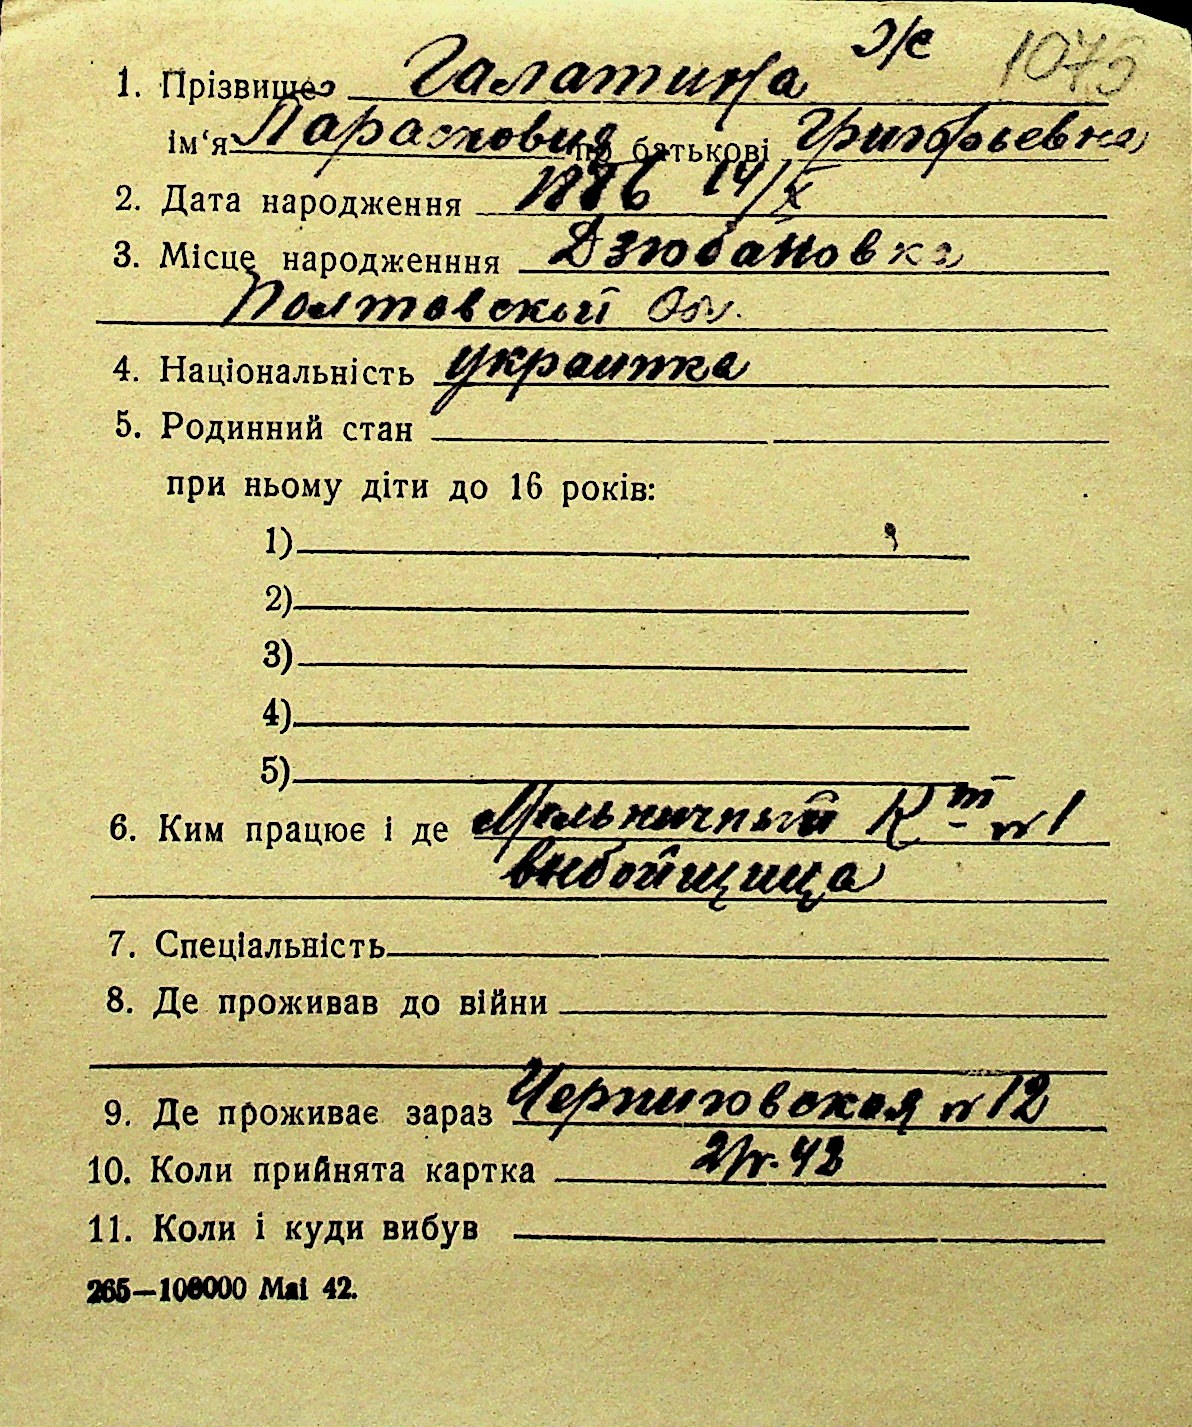 ж 1075
1. Прізвище Галатина
ім'я Парасковия по батькові Григорьевна
2. Дата народження 1886 14/X
3. Місце народженння Дзюбановка
Полтавский Обл.
4. Національність украинка
5. Родинний стан
при ньому діти до 16 років:
1)
2)
3)
4)
5)
6. Ким працює і де Мельничный К-т №1
выбойщица
7. Спеціальність
8. Де проживав до війни
9. Де проживає зараз Черниговская №12
10. Коли прийнята картка 42
11. Коли і куди вибув
265—100000 Маі 42.